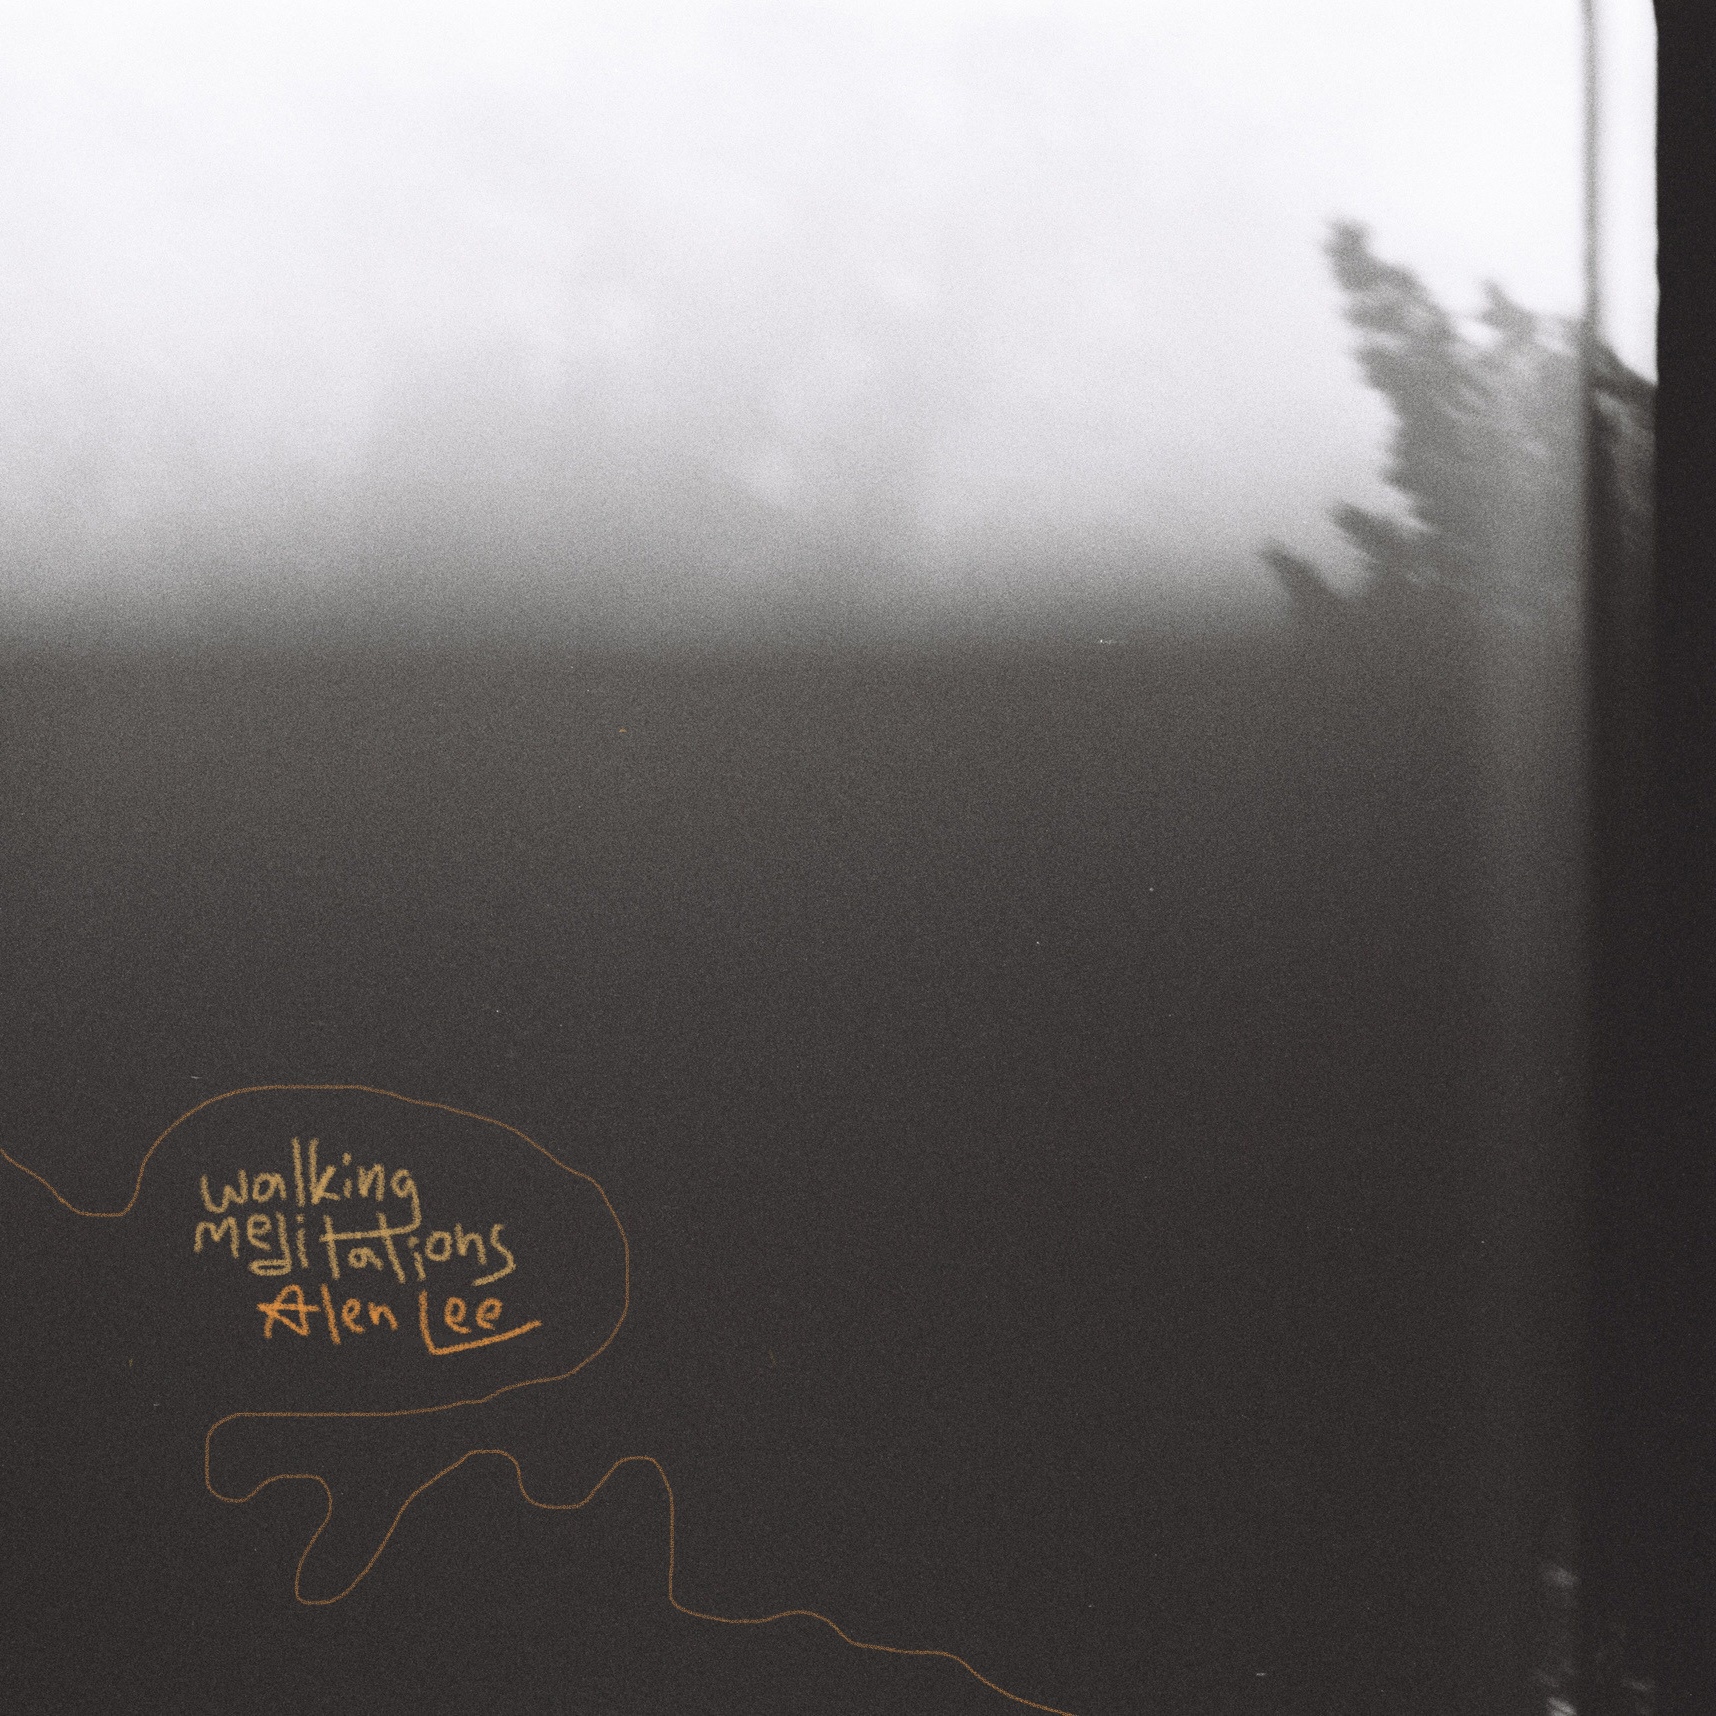 walking
meditations
Alen Lee